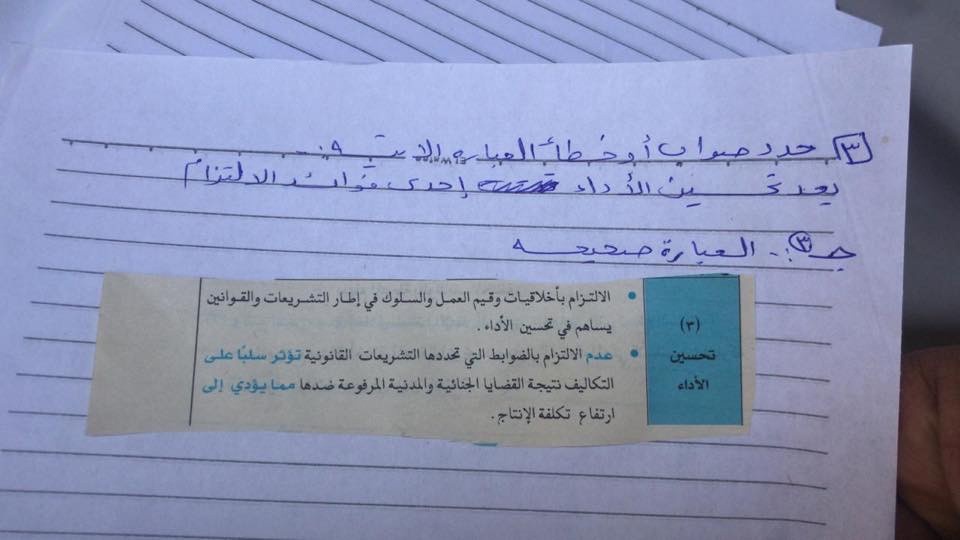 ٣ حدد صواب أو خطأ العبارة الاتية :-
يعد تحسين الأداء إحدى فوائد الالتزام
جـ ٣ :- العبارة صحيحه
(٣)
تحسين
الأداء
• الالتزام بأخلاقيات وقيم العمل والسلوك في إطار التشريعات والقوانين
يساهم في تحسين الأداء .
• عدم الالتزام بالضوابط التي تحددها التشريعات القانونية تؤثر سلبًا على
التكاليف نتيجة القضايا الجنائية والمدنية المرفوعة ضدها مما يؤدي إلى
ارتفاع تكلفة الإنتاج .